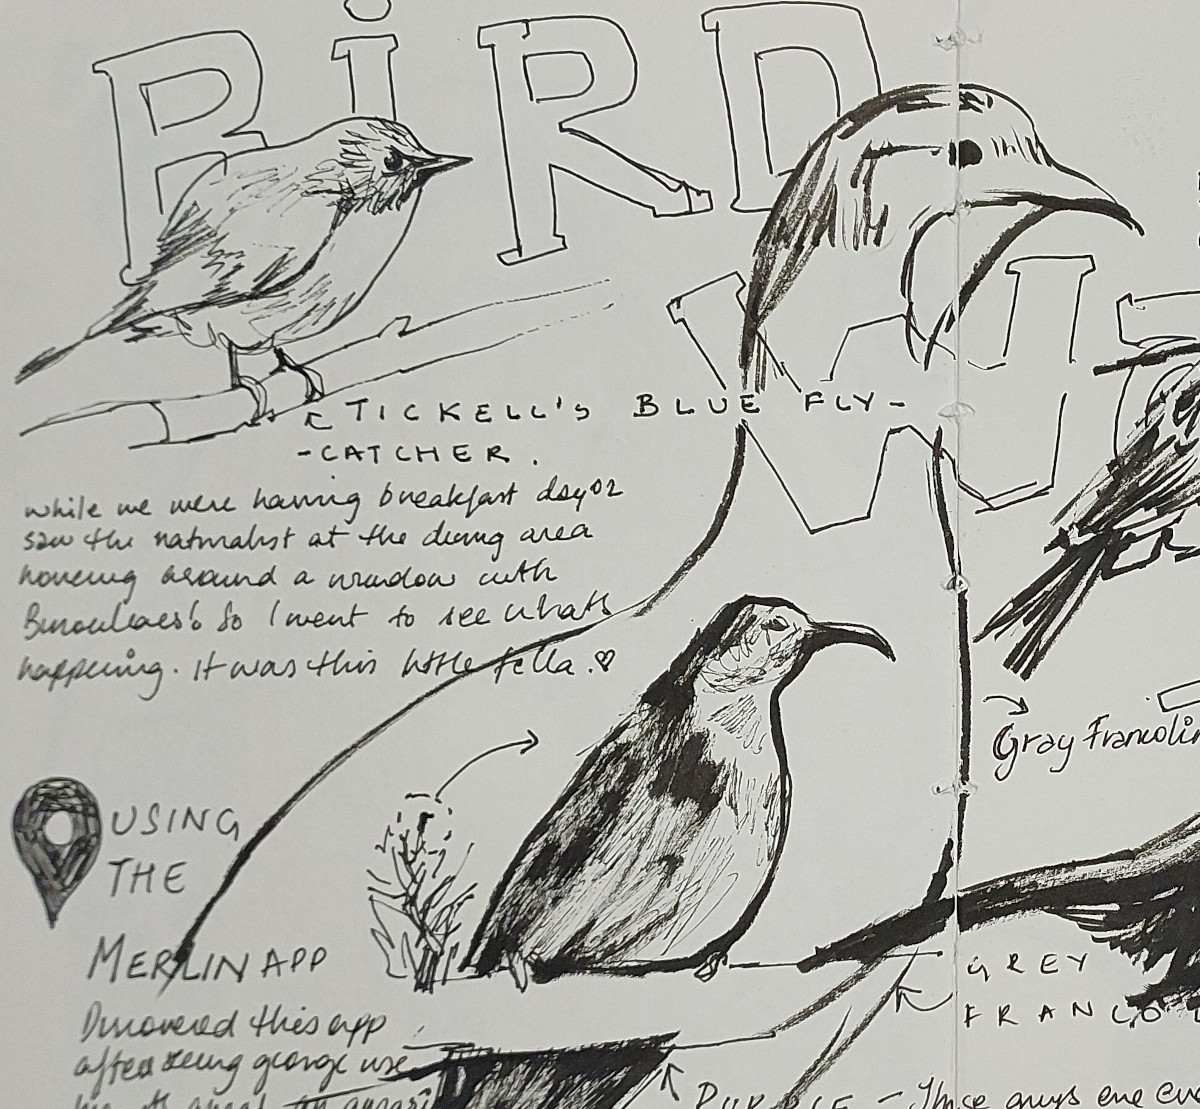 BiRD
WU
TICKELL'S BLUE FLY-
-CATCHER.
while we were having breakfast day 02
saw the naturalist at the dining area
hovering around a window with
Binoculars! So I went to see whats
happening. it was this little fella. ♡
Gray Francolin
USING
THE
MERLIN APP
GREY
FRANCO
Discovered this app
after seeing george use
PURPLE - These guys are